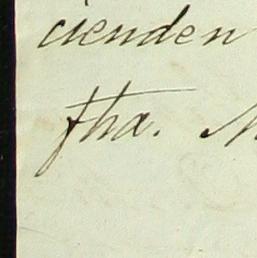 cienden
fha. M